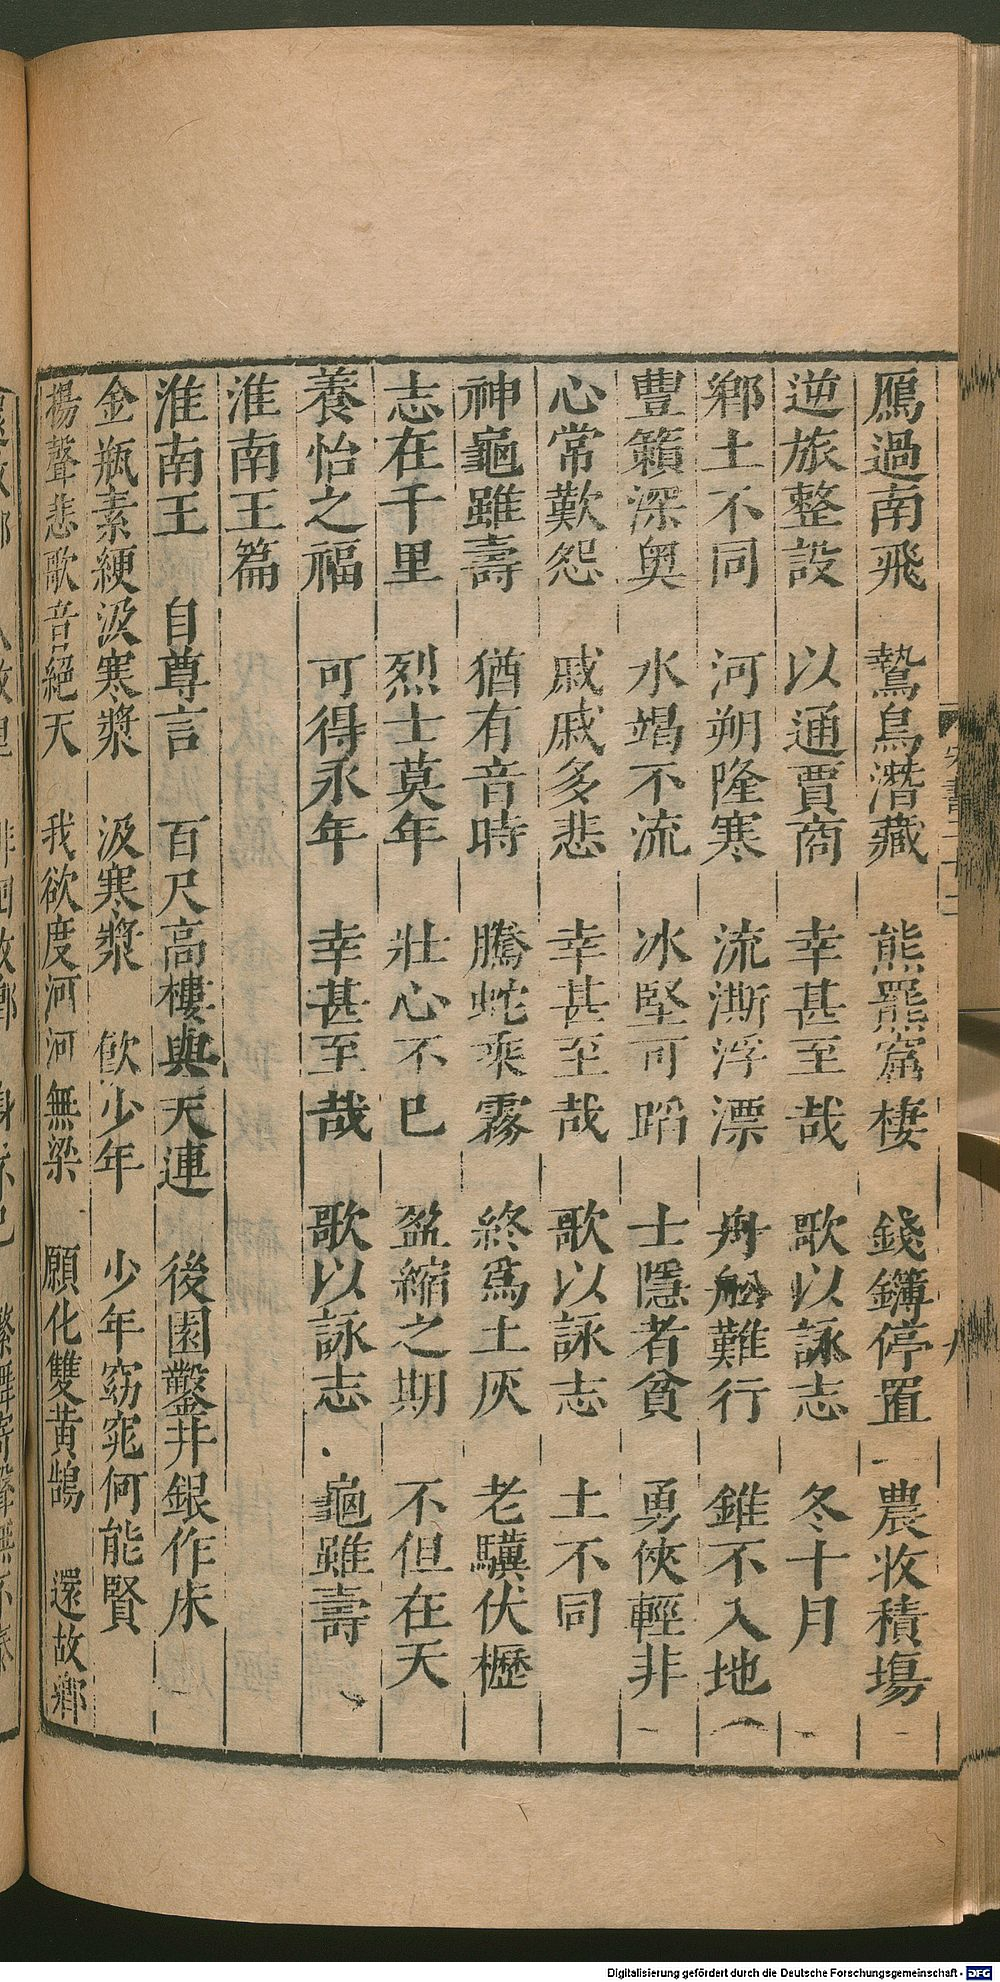 鴈過南飛　鷙鳥潛藏　熊羆窟棲　錢鎛停置　農收積場
逆旅整設　以通賈商　幸甚至哉　歌以詠志　冬十月
鄉土不同　河朔隆寒　流澌浮漂　舟船難行　錐不入地
豐籟深奧　水竭不流　冰堅可蹈　士隱者貧　勇俠輕非
心常歎怨　戚戚多悲　幸甚至哉　歌以詠志　土不同
神龜雖壽　猶有音時　騰蛇乘霧　終爲土灰　老驥伏櫪
志在千里　烈士莫年　壯心不已　盈縮之期　不但在天
養怡之福　可得永年　幸甚至哉　歌以詠志　龜雖壽
淮南王篇
淮南王　自尊言　百尺高樓與天連　後園鑿井銀作床
金瓶素綆汲寒漿　汲寒漿　飲少年　少年窈窕何能賢
揚聲悲歌音絕天　我欲度河河無梁　願化雙黃鵠　還故鄉
Digitalisierung gefördert durch die Deutsche Forschungsgemeinschaft - DFG